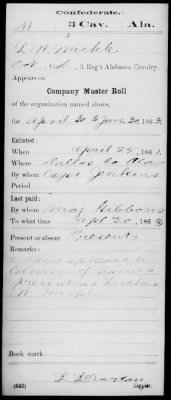 Confederate.
M 3 Cav. Ala.
L. W. Mickle
Co. , 3 Reg't Alabama Cavalry.
Appears on
Company Muster Roll
of the organization named above,
for April 30 to June 30, 1863.
Enlisted:
When April 25, 186
Where Dallas Co Ala
By whom Capt Jenkins
Period
Last paid:
By whom Maj Gibbons
To what time Apl 30, 1863
Present or absent Present
Remarks:
Name appears in
column of names
present as Luther
W. Mickle
Book mark:
(642) Copyist.